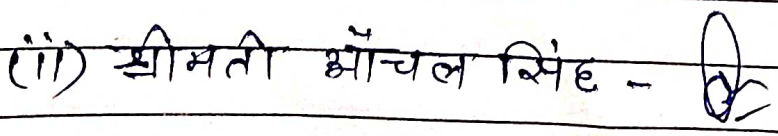 (ii) श्रीमती आँचल सिंह -